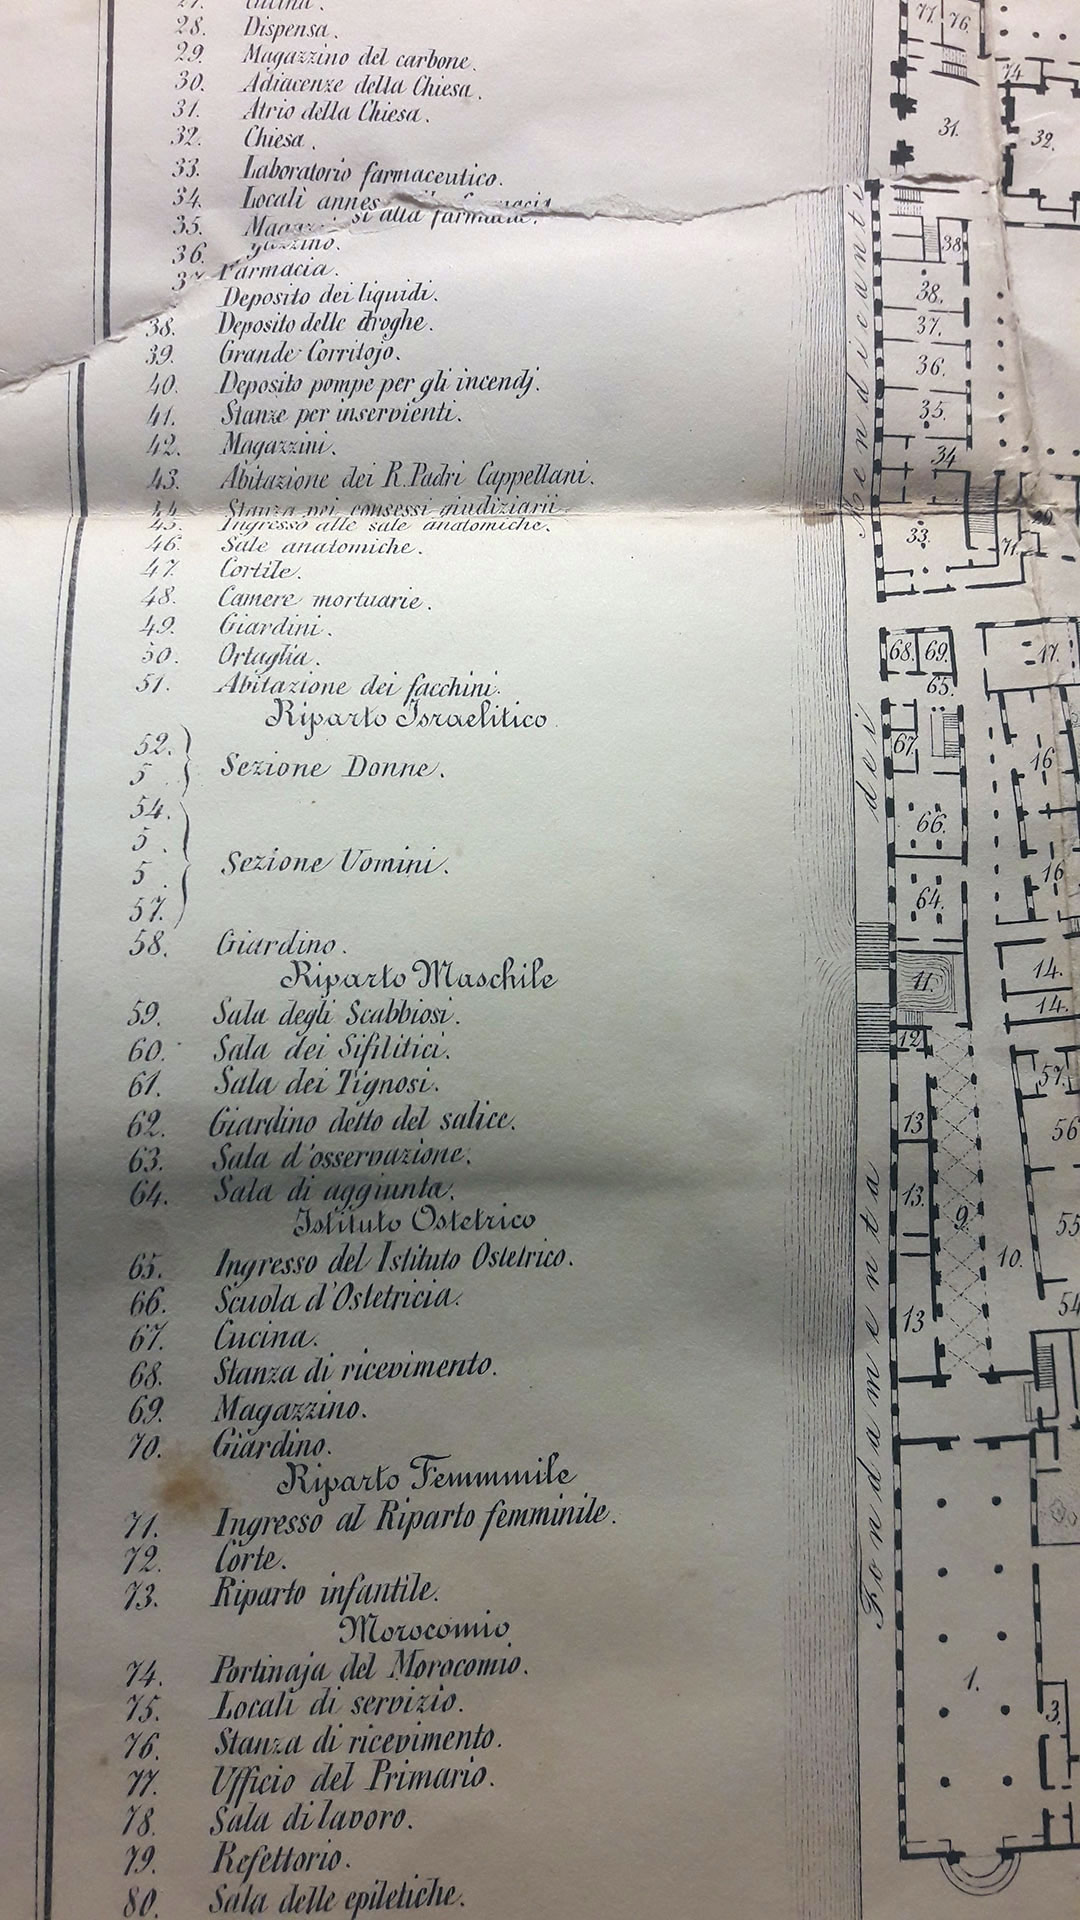 27. Cucina.
28. Dispensa.
29. Magazzino del carbone.
30. Adiacenze della Chiesa.
31. Atrio della Chiesa.
32. Chiesa.
33. Laboratorio farmaceutico.
34. Locali annessi alla farmacia.
35. Magazzino.
36. Farmacia.
37. Deposito dei liquidi.
38. Deposito delle droghe.
39. Grande Corritojo.
40. Deposito pompe per gli incendj.
41. Stanze per inservienti.
42. Magazzini.
43. Abitazione dei R. Padri Cappellani.
44. Stanza pei consessi giudiziarii
45. Ingresso alle sale anatomiche.
46. Sale anatomiche.
47. Cortile.
48. Camere mortuarie.
49. Giardini.
50. Ortaglia.
51. Abitazione dei facchini.
Riparto Israelitico
52.
5 Sezione Donne.
54.
5.
5 Sezione Uomini.
57.
58. Giardino.
Riparto Maschile
59. Sala degli Scabbiosi.
60. Sala dei Sifilitici.
61. Sala dei Tignosi.
62. Giardino detto del salice.
63. Sala d'osservazione.
64. Sala di aggiunta.
Istituto Ostetrico
65. Ingresso del Istituto Ostetrico.
66. Scuola d'Ostetricia.
67. Cucina.
68. Stanza di ricevimento.
69. Magazzino.
70. Giardino.
Riparto Femmmile
71. Ingresso al Riparto femminile.
72. Corte.
73. Riparto infantile.
Morocomio
74. Portinaja del Morocomio.
75. Locali di servizio.
76. Stanza di ricevimento.
77. Ufficio del Primario.
78. Sala di lavoro.
79. Refettorio.
80. Sala delle epiletiche.
Fondamenta dei Mendicanti
77. 76.
74
31. 32.
38
38.
37.
36.
35.
34
33. 71.
68. 69. 17.
65.
67.
16
66.
16
64.
14.
11.
14.
12
57.
13 56
13. 9. 55
10.
54
13
1. 3.